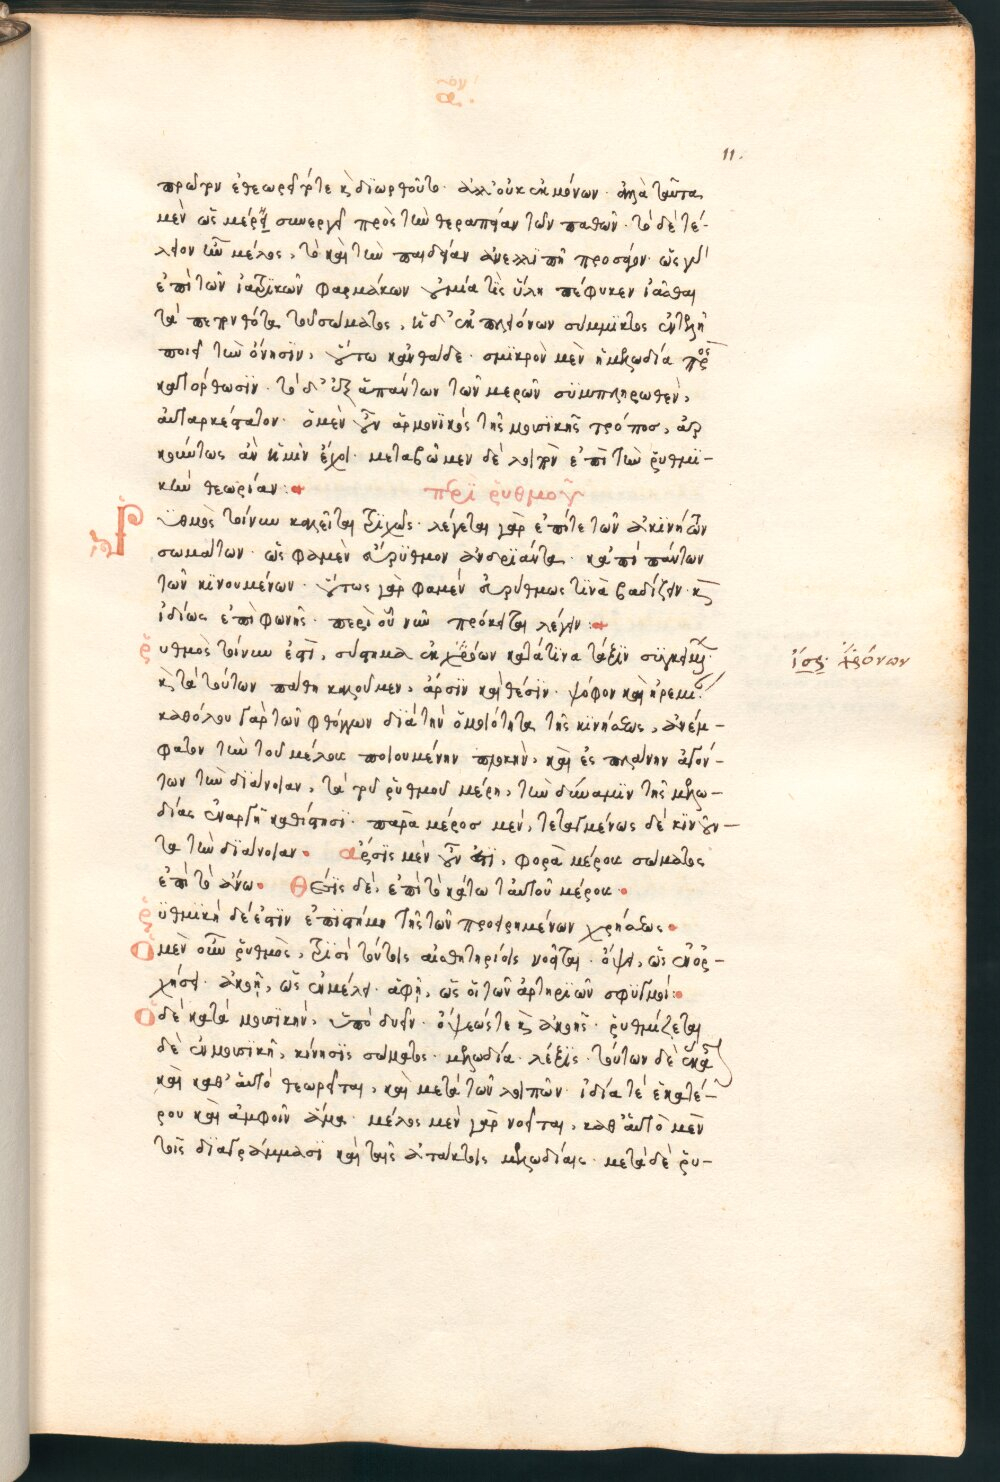 α΄ον
11.
πρῶτον ἐθεωρεῖτό τε κ̀ διωρθοῦτο· ἀλλ' οὐκ ἐκ μόνων· ἀλλὰ ταῦτα
μὲν ὡς μέρη συνεργεῖ πρὸς τὴν θεραπείαν τῶν παθῶν· τὸ δὲ τέ-
λειον ἦν μέλος, τὸ καὶ τὴν παιδείαν ἀνελλιπῆ προσάγον· ὡς γὰρ
ἐπὶ τῶν ἰατρικῶν φαρμάκων οὐ μία τις ὕλη πέφυκεν ἰᾶσθαι
τὰ πεπονθότα τοῦ σώματος, ἡ δ' ἐκ πλειόνων σύμμικτος ἐντελῆ
ποιεῖ τὴν ὄνησιν, οὕτω κἀνθάδε· σμικρὸν μὲν ἡ μελωδία πρὸς
κατόρθωσιν· τὸ δ' ἐξ ἁπάντων τῶν μερῶν συμπληρωθὲν,
αὐταρκέστατον· ὁ μὲν οὖν ἁρμονικὸς τῆς μουσικῆς τρόπος,
κούντως ἂν ἡμῖν ἔχοι· μεταβῶμεν δὲ λοιπὸν ἐπὶ τὴν ῥυθμι-
κὴν θεωρίαν:+ περὶ ῥυθμοῦ
Ρυθμὸς τοίνυν καλεῖται τριχῶς· λέγεται γὰρ ἐπί τε τῶν ἀκινήτων
σωμάτων· ὥς φαμὲν εὔρυθμον ἀνδριάντα· κἀπὶ πάντων
τῶν κινουμένων· οὕτως γὰρ φαμέν εὐρύθμως τινὰ βαδίζειν· κ̀
ἰδίως ἐπὶ φωνῆς· περὶ οὗ νῦν πρόκειται λέγειν:+
ῥυθμὸς τοίνυν ἐστὶ, σύστημα ἐκ χρόνων κατά τινα τάξιν συγκείμενον·
ἴσως χρόνων
κ̀ τὰ τούτων πάθη καλοῦμεν, ἄρσιν καὶ θέσιν· ψόφον καὶ ἠρεμίαν·
καθόλου γὰρ τῶν φθόγγων διὰ τὴν ὁμοιότητα τῆς κινήσεως, ἀνέμ-
φατον τὴν τοῦ μέλους ποιουμένην πλοκὴν, καὶ ἐς πλάνην ἀγόν-
των τὴν διάνοιαν, τὰ τοῦ ῥυθμοῦ μέρη, τὴν δύναμιν τῆς μελω-
δίας ἐναργῆ καθίστησι· παρὰ μέρος μὲν, τεταγμένως δὲ κινοῦν-
τα τὴν διάνοιαν· ἄρσις μὲν οὖν ἐστι, φορὰ μέρους σώματος
ἐπὶ τὸ ἄνω· Θέσις δὲ, ἐπὶ τὸ κάτω ταὐτοῦ μέρους·
ῥυθμικὴ δέ ἐστιν ἐπιστήμη τῆς τῶν προειρημένων χρήσεως·
Ὁ μὲν οὖν ῥυθμὸς, τρισὶ τούτοις αἰσθητηρίοις νοεῖται· ὄψει, ὡς ἐν ὀρ-
χήσει· ἀκοῇ, ὡς ἐν μέλει· ἁφῇ, ὡς οἱ τῶν ἀρτηριῶν σφυγμοί:
Ὁ δὲ κατὰ μουσικὴν, ὑπὸ δυεῖν· ὄψεώς τε κ̀ ἀκοῆς· ῥυθμίζεται
δὲ ἐν μουσικῇ, κίνησις σώματος· μελωδία· λέξις· τούτων δὲ ἕκαστον
καὶ καθ' αὑτὸ θεωρεῖται, καὶ μετὰ τῶν λοιπῶν· ἰδίᾳ τε ἑκατέ-
ρου καὶ ἀμφοῖν ἅμα· μέλος μὲν γὰρ νοεῖται, καθ' αὑτὸ μὲν
τοῖς διαγράμμασι καὶ ταῖς ἀτάκτοις μελωδίαις· μετὰ δὲ ῥυ-